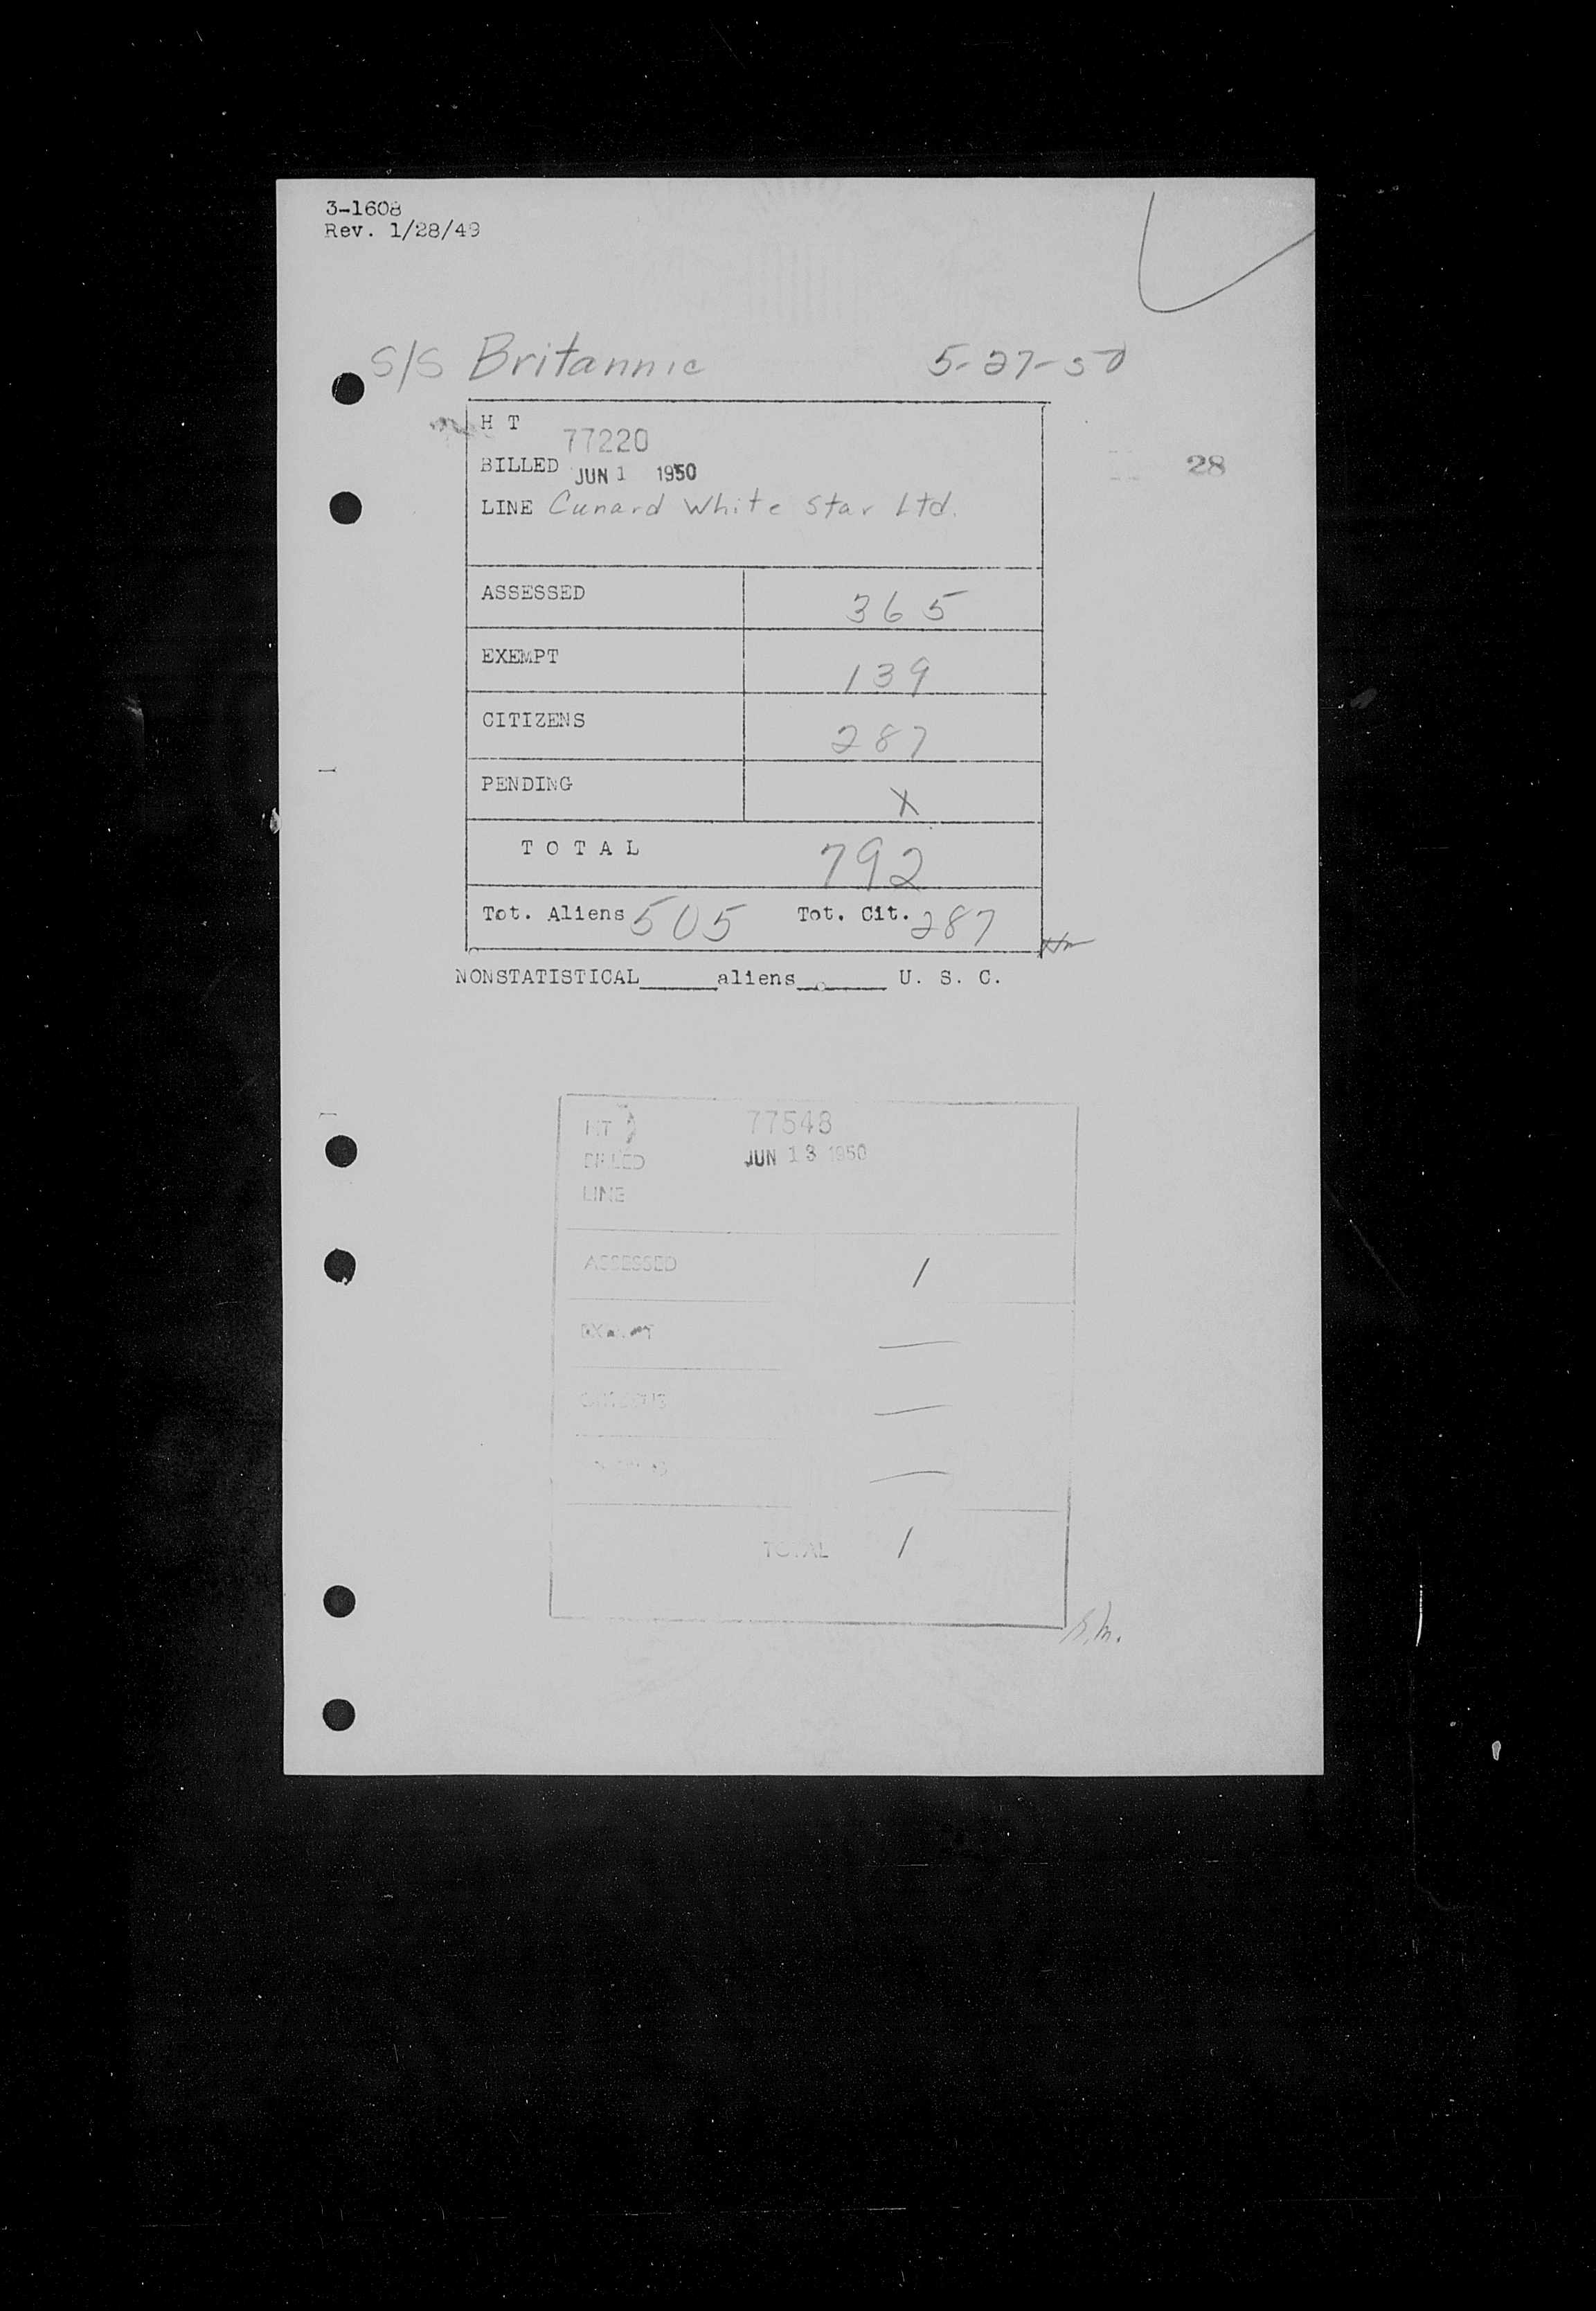 3-1608
Rev. 1/28/49
S/S Britannic 5-27-50
H T
77220
BILLED JUN 1 1950
28
LINE Cunard White Star Ltd.
ASSESSED 365
EXEMPT 139
CITIZENS 287
PENDING X
T O T A L 792
Tot. Aliens 505 Tot. Cit. 287
NONSTATISTICAL______aliens_______ U. S. C.
HT 77548
BILLED JUN 13 1950
LINE
ASSESSED 1
EXEMPT —
CITIZENS —
PENDING —
TOTAL 1